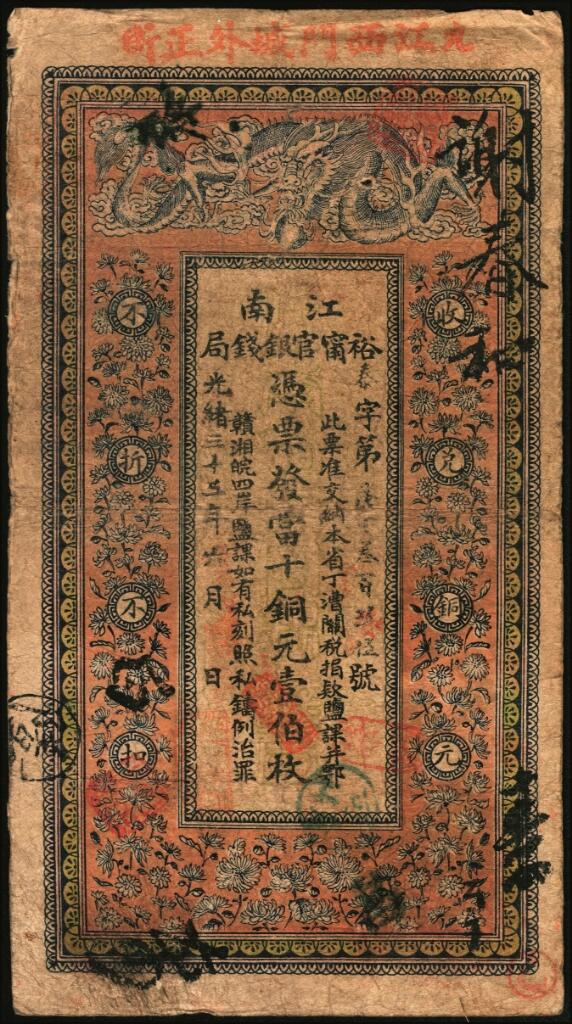 西門城外正
江南
裕甯官銀錢局
字第 叁百 號
此票准交納本省丁漕關稅捐款鹽課并鄂
憑票發當十銅元壹伯枚
贛湘皖四岸鹽課如有私刻照私鑄例治罪
光緒三十 年 月 日
收兌銅元
不折不扣
謝春和